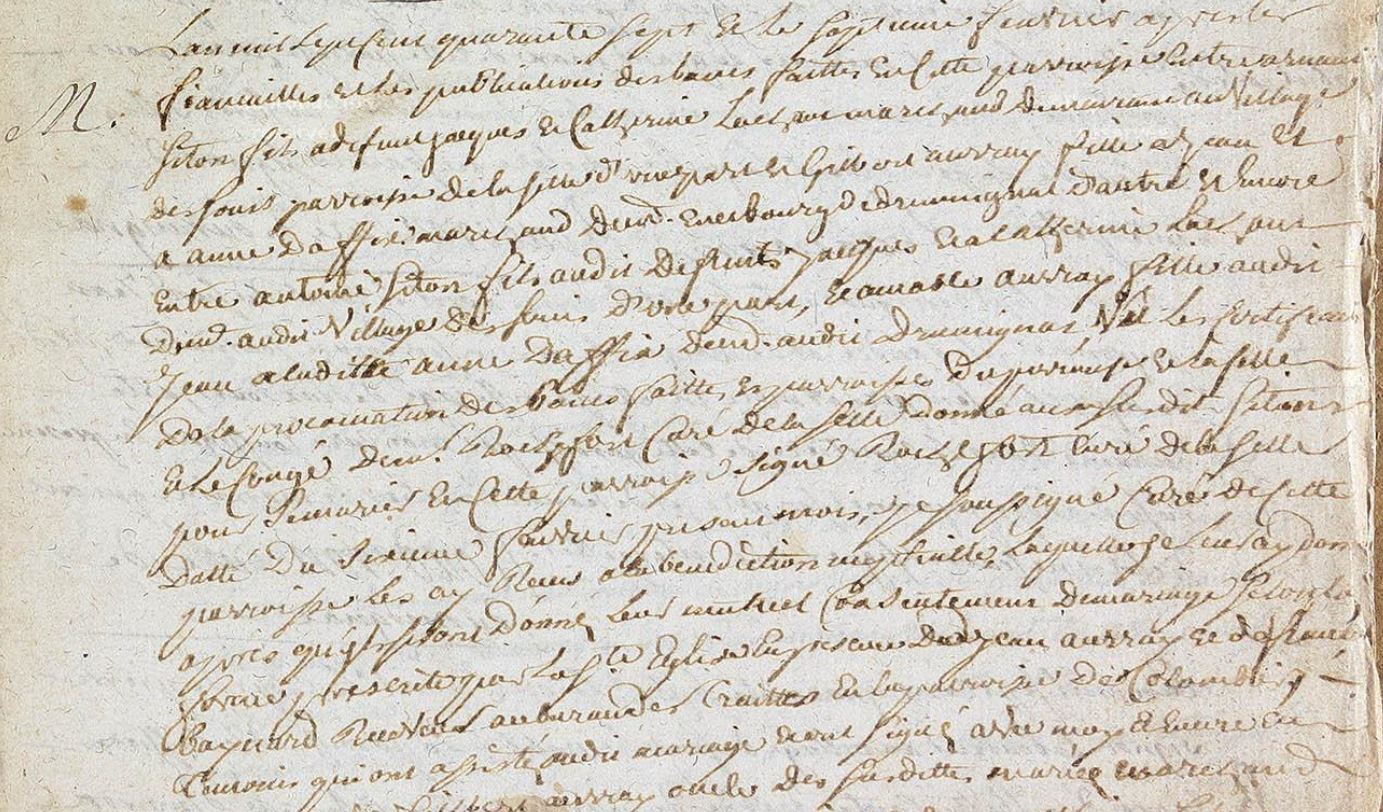 M.
Lan mil sept Cent quarante sept Et le septieme feuvrier apres les
fiancailles et les publications des bancs faittes En Cette parroisse Entre
siton fils a defunt jacques Et Catherine marchand demeurant au Village
des fouis parroisse de la selle d'une part Et Gilberte auvray fille a jean Et
a anne Daffix marchand demt. En ce bourg de drumignat d'autre Et Encore
Entre antoine siton fils audit Defunt jacques Et a Catherine
Demt. audit Village des fouis D'une part, Et amable auvray fille audit
jean a laditte anne Daffix demt. audit drumignat, Vu les Certificats
De la proclamation des bancs faittes, En parroisses Et de la selle
Et le Congé de mr. Rochefort Curé de la selle donné aux susdits sitons
pour se marier En Cette parroisse signé Rochefort Curé de la selle
datté Du sixieme feuvrier present mois, je soussigné Curé de Cette
parroisse les ay Receus a la benediction nuptialle, laquelle je leurs ay donné
apres qu'ils se sont Donné leur mutuel Consentement de mariage selon la
forme prescrite par la ste. Eglise En presence dud. jean auvray Et de
Baynard Receveur au bureau des Traittes En la parroisse de Colombier
Temoins qui ont assisté audit mariage Et ont signé avec moy Et Encore En
auvray oncle des susdittes mariées marchand